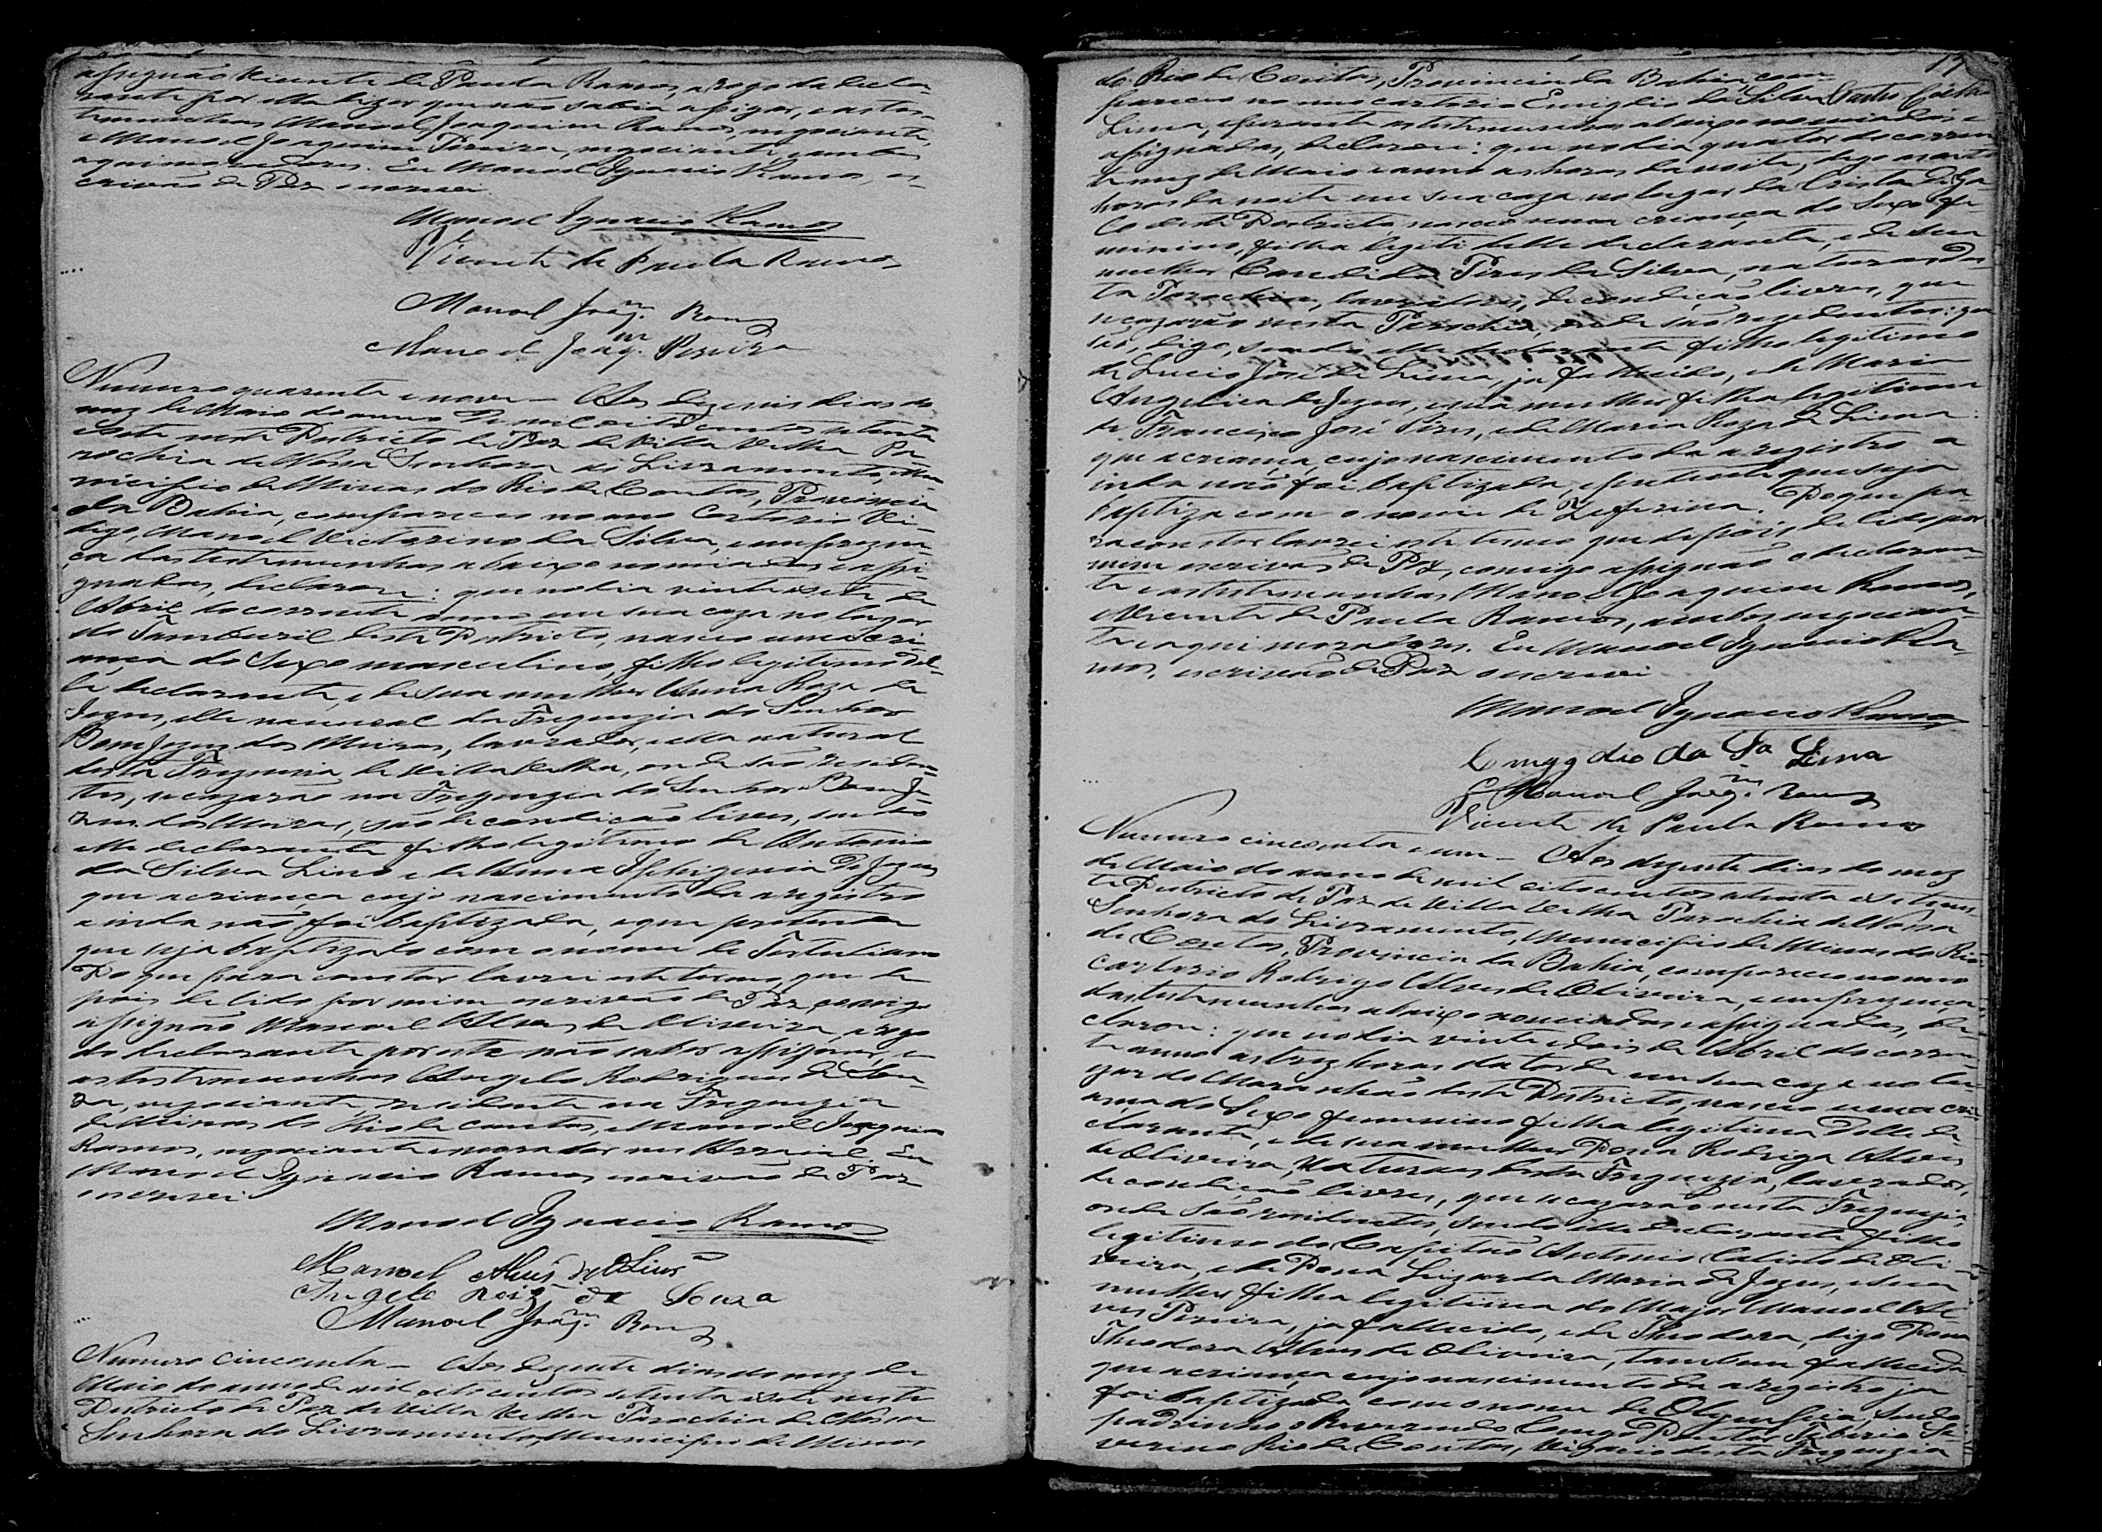 assignão Vicente de Paula Ramos, a rogo da decla
rante por ella dizer que não sabia assignar, e as tes-
temunhas Manoel Joaquim Ramos, negociante,
e Manoel Joaquim Pereira, negociante, ambos
aqui moradores. Eu Manoel Ignacio Ramos, es-
crivão de Paz escrevi
Manoel Ignacio Ramos
Vicente de Paula Ramos
Manoel Joaqm. Ramos
Manoel Joaqm. Pereira
Numero quarenta e nove — Aos dezeseis dias do
mez de Maio do anno de mil oito centos setenta
e sete neste Districto de Paz de Villa Velha Pa
rochia de Nossa Senhora do Livramento, Mu
nicipio de Minas do Rio de Contas, Provincia
da Bahia, compareceo no meo Cartorio Vi-
digo, Manoel Victorino da Silva, em prezen-
ça das testemunhas abaixo nomiadas e assi-
gnadas, declarou: que no dia vinte e sete de
Abril do corrente anno em sua caza no lugar
do Tamburil deste Districto, nasceo uma cri-
ança do Sexo masculino, filho legitimo del-
le declarante, e de sua mulher Anna Roza de
Jezus, elle natural da Freguezia do Senhor
Bom Jezus dos Meiras, lavrador, ella natural
desta Freguezia de Villa Velha, onde são residen-
tes, e cazarão na Freguezia do Senhor Bom Je-
zus dos Meiras, são de condição livres, sendo
elle declarante filho legitimo de Antonio
da Silva Lino e de Anna Iphigenia de Jezus
que a criança cujo nascimento da a registro
ainda não foi baptizada, e que pretende
que seja baptizado com o nome de Tertuliano
Do que para constar lavrei este termo, que de
pois de lido por mim escrivão de Paz, comigo
assignão Manoel Alves de Oliveira, a rogo
do declarante por este não saber assignar, e
as testemunhas Angelo Rodrigues de Sou-
za, negociante, residente na Freguezia
de Minas do Rio de Contas, e Manoel Joaquim
Ramos, negociante e morador neste Arraial. Eu
Manoel Ignacio Ramos escrivão de Paz
escrevi
Manoel Ignacio Ramos
Manoel Alves de Olivra
Angelo Roiz de Souza
Manoel Joaqm. Ramos
Numero cincoenta — Aos dezesete dias do mez de
Maio do anno de mil oito centos setenta e sete neste
Districto de Paz de Villa Velha Parochia de Nossa
Senhora do Livramento, Municipio de Minas
do Rio de Contas, Provincia da Bahia, com-
pareceo no meo cartorio Emigdio da Silva
Lima, e perante as testemunhas abaixo nomiadas e
assignadas, declarou: que no dia quatro do corren
te mez de Maio e anno as horas da noite, digo as oito
horas da noite em sua caza no lugar da Crista de Ga-
lo deste Districto, nasceo uma criança do Sexo fe-
minino, filha legiti delle declarante, e de sua
mulher Candida Pires da Silva, naturaes des-
ta Parochia, lavradores, de condição livres, que
se cazarão nesta Parochia, onde são rezidentes: que
são, digo, sendo elle declarante filho legitimo
de Lucio José de Lima, ja fallecido, e de Maria
Angelica de Jezus, e sua mulher filha legitima
de Francisco José Pires, e de Maria Roza de Lima:
que a criança, cujo nascimento da a registro a
inda não foi baptizada, e pretende que seja
baptiza com o nome de Zeferina. Do que pa
ra constar lavrei este termo que depois de lido por
mim escrivão de Paz, comigo assignão o declaran
te e as testemunhas Manoel Joaquim Ramos,
e Vicente de Paula Ramos, ambos negocian-
tes e aqui moradores. Eu Manoel Ignacio Ra-
mos, escrivão de Paz escrevi
Manoel Ignacio Ramos
Emygdio da Sa Lima
Manoel Joaqm. Ramos
Vicente de Paula Ramos
Numero cincoenta e um — Aos dezesete dias do mez
de Maio do anno de mil oito centos setenta e sete nes-
te Districto de Paz de Villa Velha Parochia de Nossa
Senhora do Livramento, Municipio de Minas do Rio
de Contas, Provincia da Bahia, compareceo no meo
cartorio Rodrigo Alves de Oliveira, em prezença
das testemunhas abaixo nomiadas e assignadas, de-
clarou: que no dia vinte e dois de Abril do corren-
te anno as trez horas da tarde em sua caza no lu-
gar do Maranhão deste Districto, nasceo uma cri-
ança do Sexo feminino filha legitima delle de-
clarante, e de sua mulher Dona Rodriga Alves
de Oliveira, Naturaes desta Freguezia, lavrador,
de condição livres, que se cazarão nesta Freguezia,
onde são rezidentes, sendo elle declarante filho
legitimo do Capitão Antonio Calido de Oli
veira, e de Dona Luzarda Maria de Jezus, e sua
mulher filha legitima do Major Manoel Al
ves Pereira, ja fallecido, e de Theodora, digo Dona
Theodora Alves de Oliveira, tambem fallecida
que a criança cujo nascimento da a registro ja
foi baptizada com o nome de Olympia, sendo
padrinhos o Reverendo Conego Doutor Tiberio Se-
verino Rio de Contas, Vigario desta Freguezia